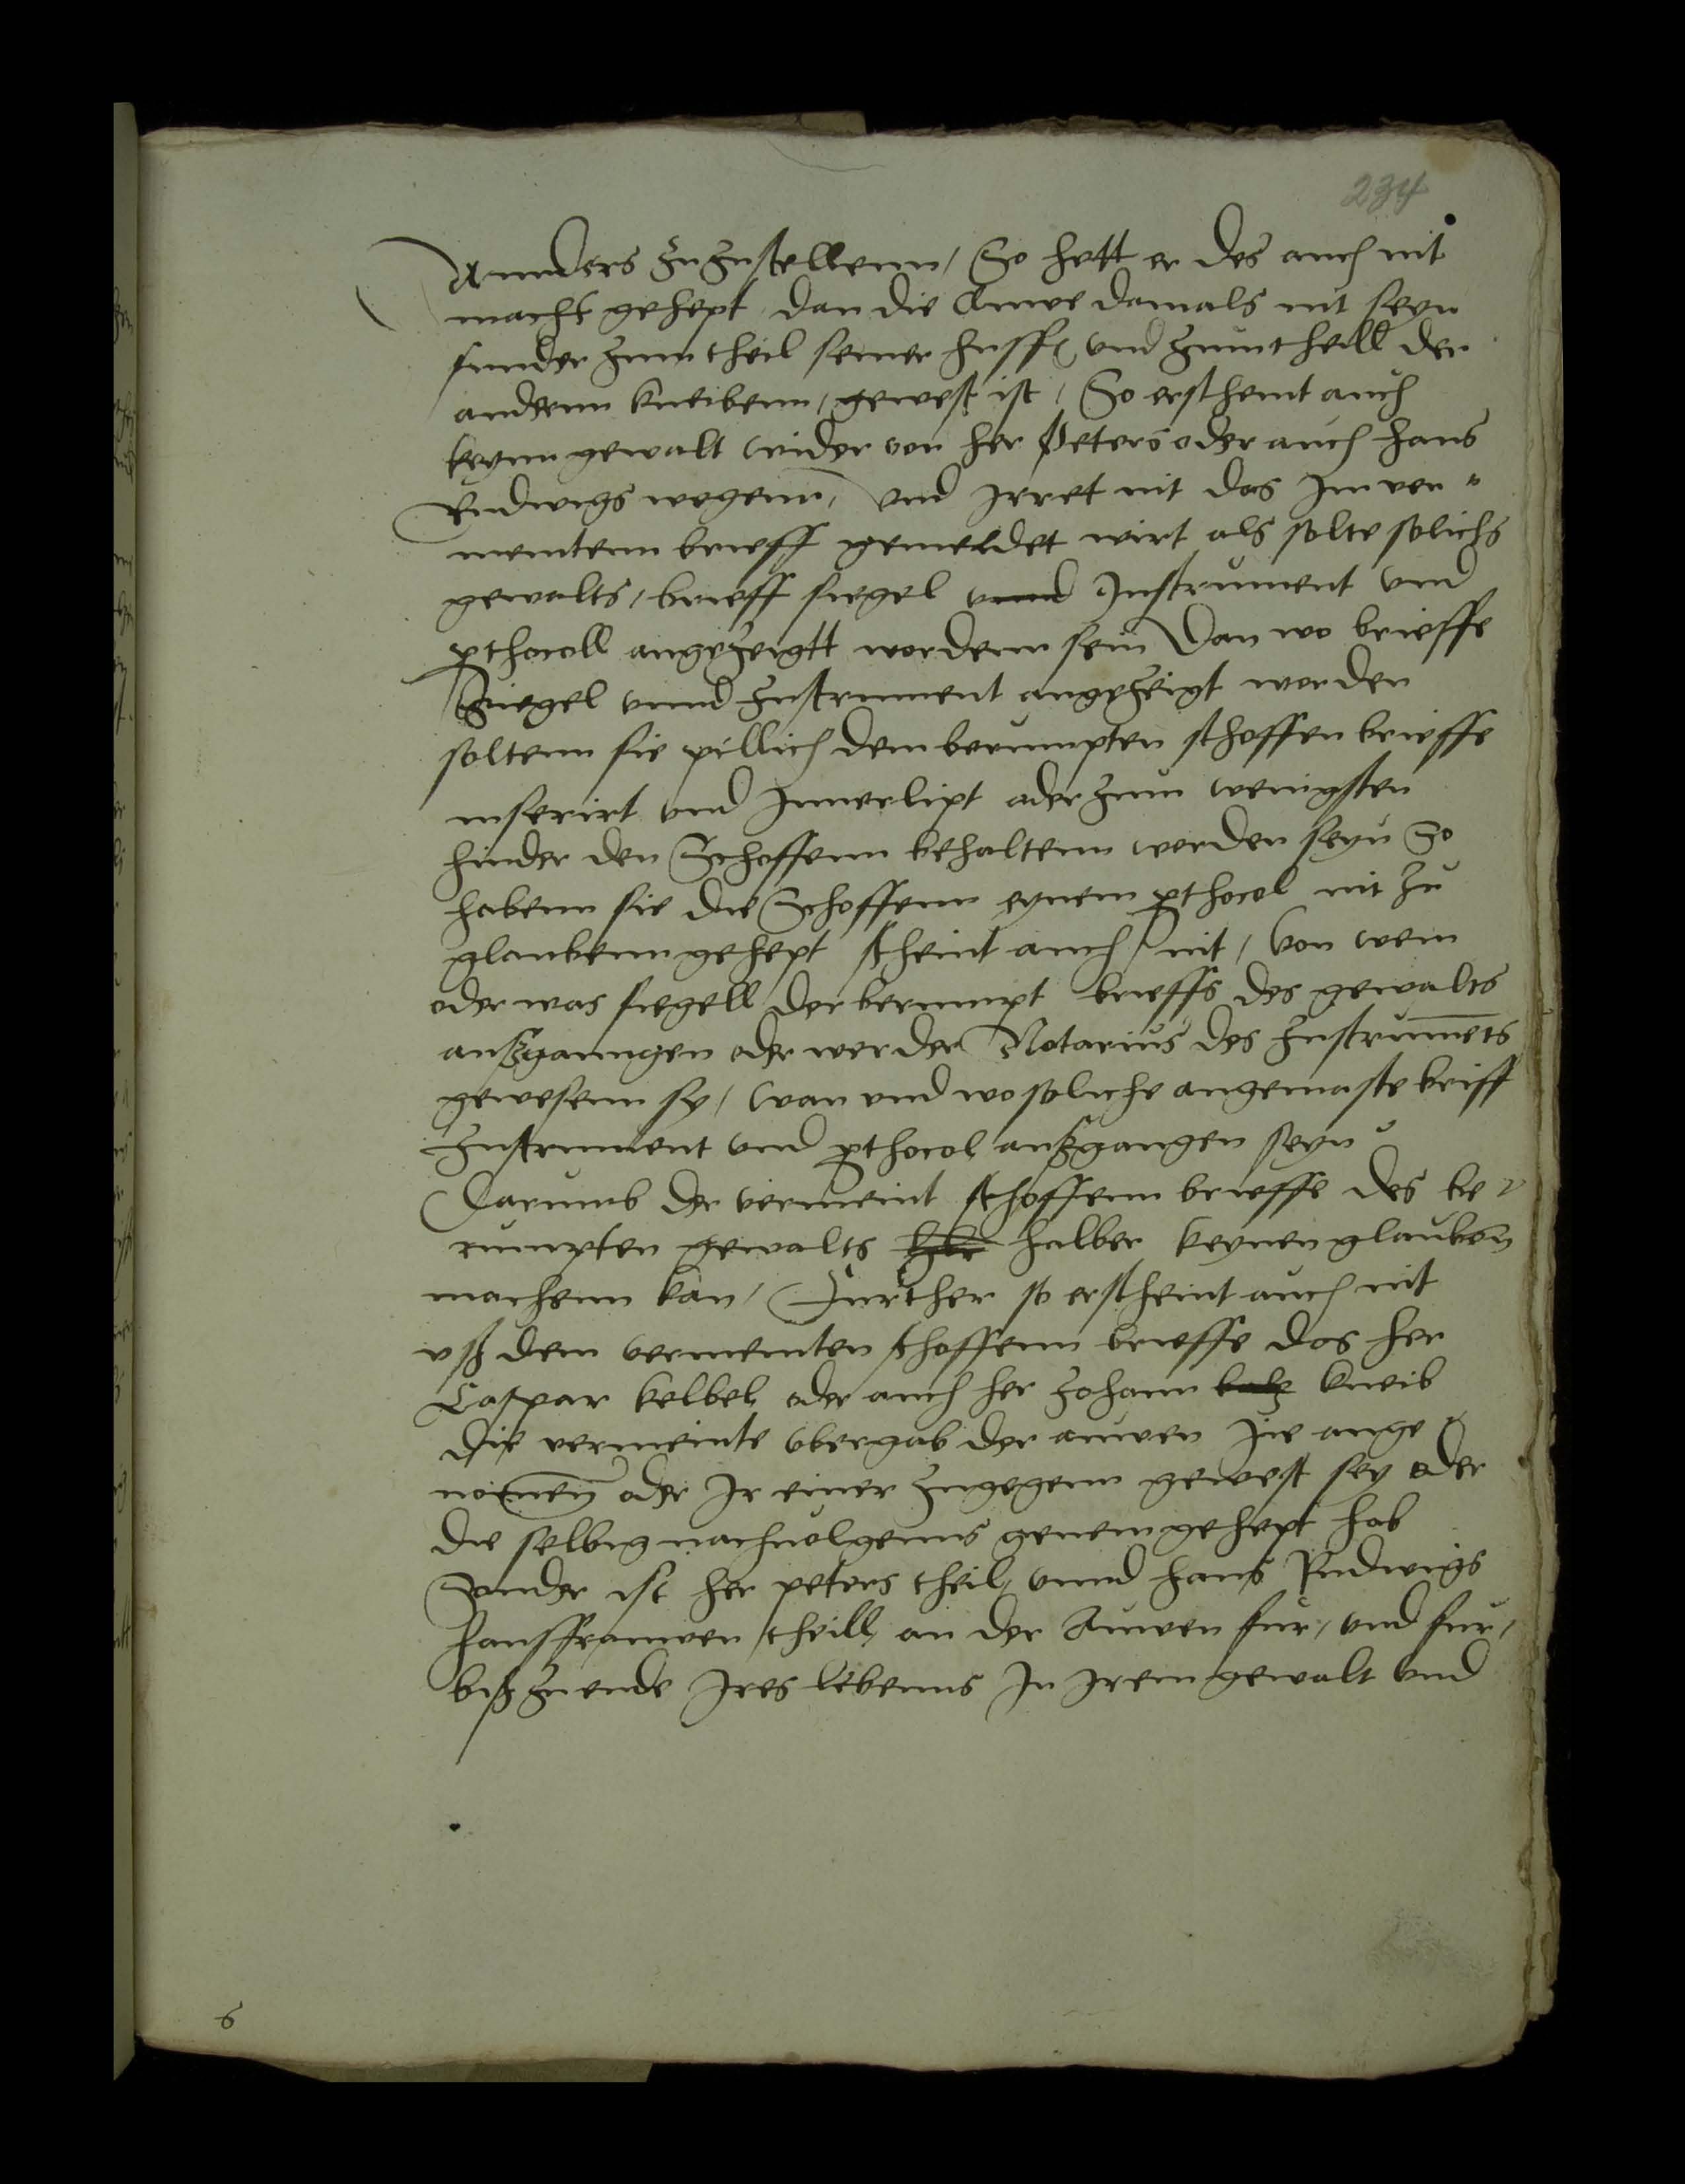 234
Annders zuzustellenn / So hett er des auch nit
macht gehept dan die Auwe damals nit seyn
sunder zum theil seiner husfr und zum theill der
anderen kneibenn / gewest ist / So erscheint auch
keynn gewalt wider von her Peters oder auch hans
Ludwigs wegenn / und Irret nit das Im ver "
meintenn brieff gemeldet wirt als solte solichs
gewalts / brieff siegel unnd Instrument und
prothocoll angezeigtt wordenn sein Dan wo brieffe
Siegel unnd Instrument angezeigt worden
soltenn sie pillich dem berumpten schoffen brieffe
inserirt und Innverlipt oder zum wenigsten
hinder den Schoffenn behaltenn worden seyn So
habenn sie die Schoffenn eynem prothocol nit zu
glaubenn gehept scheint auch nit / von wem
oder was siegell der berumpt brieffs des gewalts
außganngen oder wer der Notarius des Instruments
gewesenn sy / wan und wo soliche angemaste briff
Instrument und prothocol außgangen seyn
Darumb der vermeint schoffenn brieffe des be
rumpten gewalts halber keynen glauben
machenn kan / Further so erscheint auch nit
uß dem vermeinten schoffenn brieffe das her
Caspar kelbel oder auch her Johann kneib
die vermeinte ubergab der auwen Jie ange
nomen oder Ir einer zugegenn gewest sey oder
die selbig nachvolgenns genem gehept hab
Sunder ist her peters theil unnd hans Ludwigs
hausfrauwen theill an der Auwen fur / und fur /
biß zu ende Ires lebenns In Irem gewalt und
6